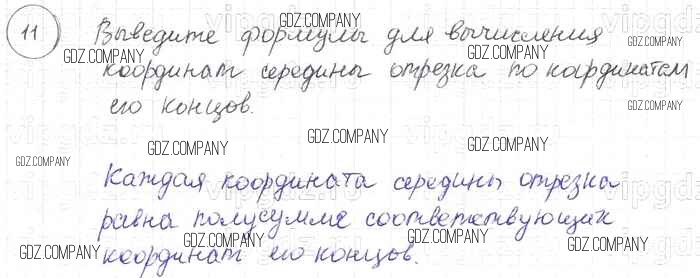 11 Выведите формулы для вычисления
координат середины отрезка по координатам
его концов.
Каждая координата середины отрезка
равна полусумме соответствующих
координат его концов.
GDZ.COMPANY
GDZ.COMPANY
GDZ.COMPANY
GDZ.COMPANY
GDZ.COMPANY
GDZ.COMPANY
GDZ.COMPANY
GDZ.COMPANY
GDZ.COMPANY
GDZ.COMPANY
GDZ.COMPANY
GDZ.COMPANY
GDZ.COMPANY
GDZ.COMPANY